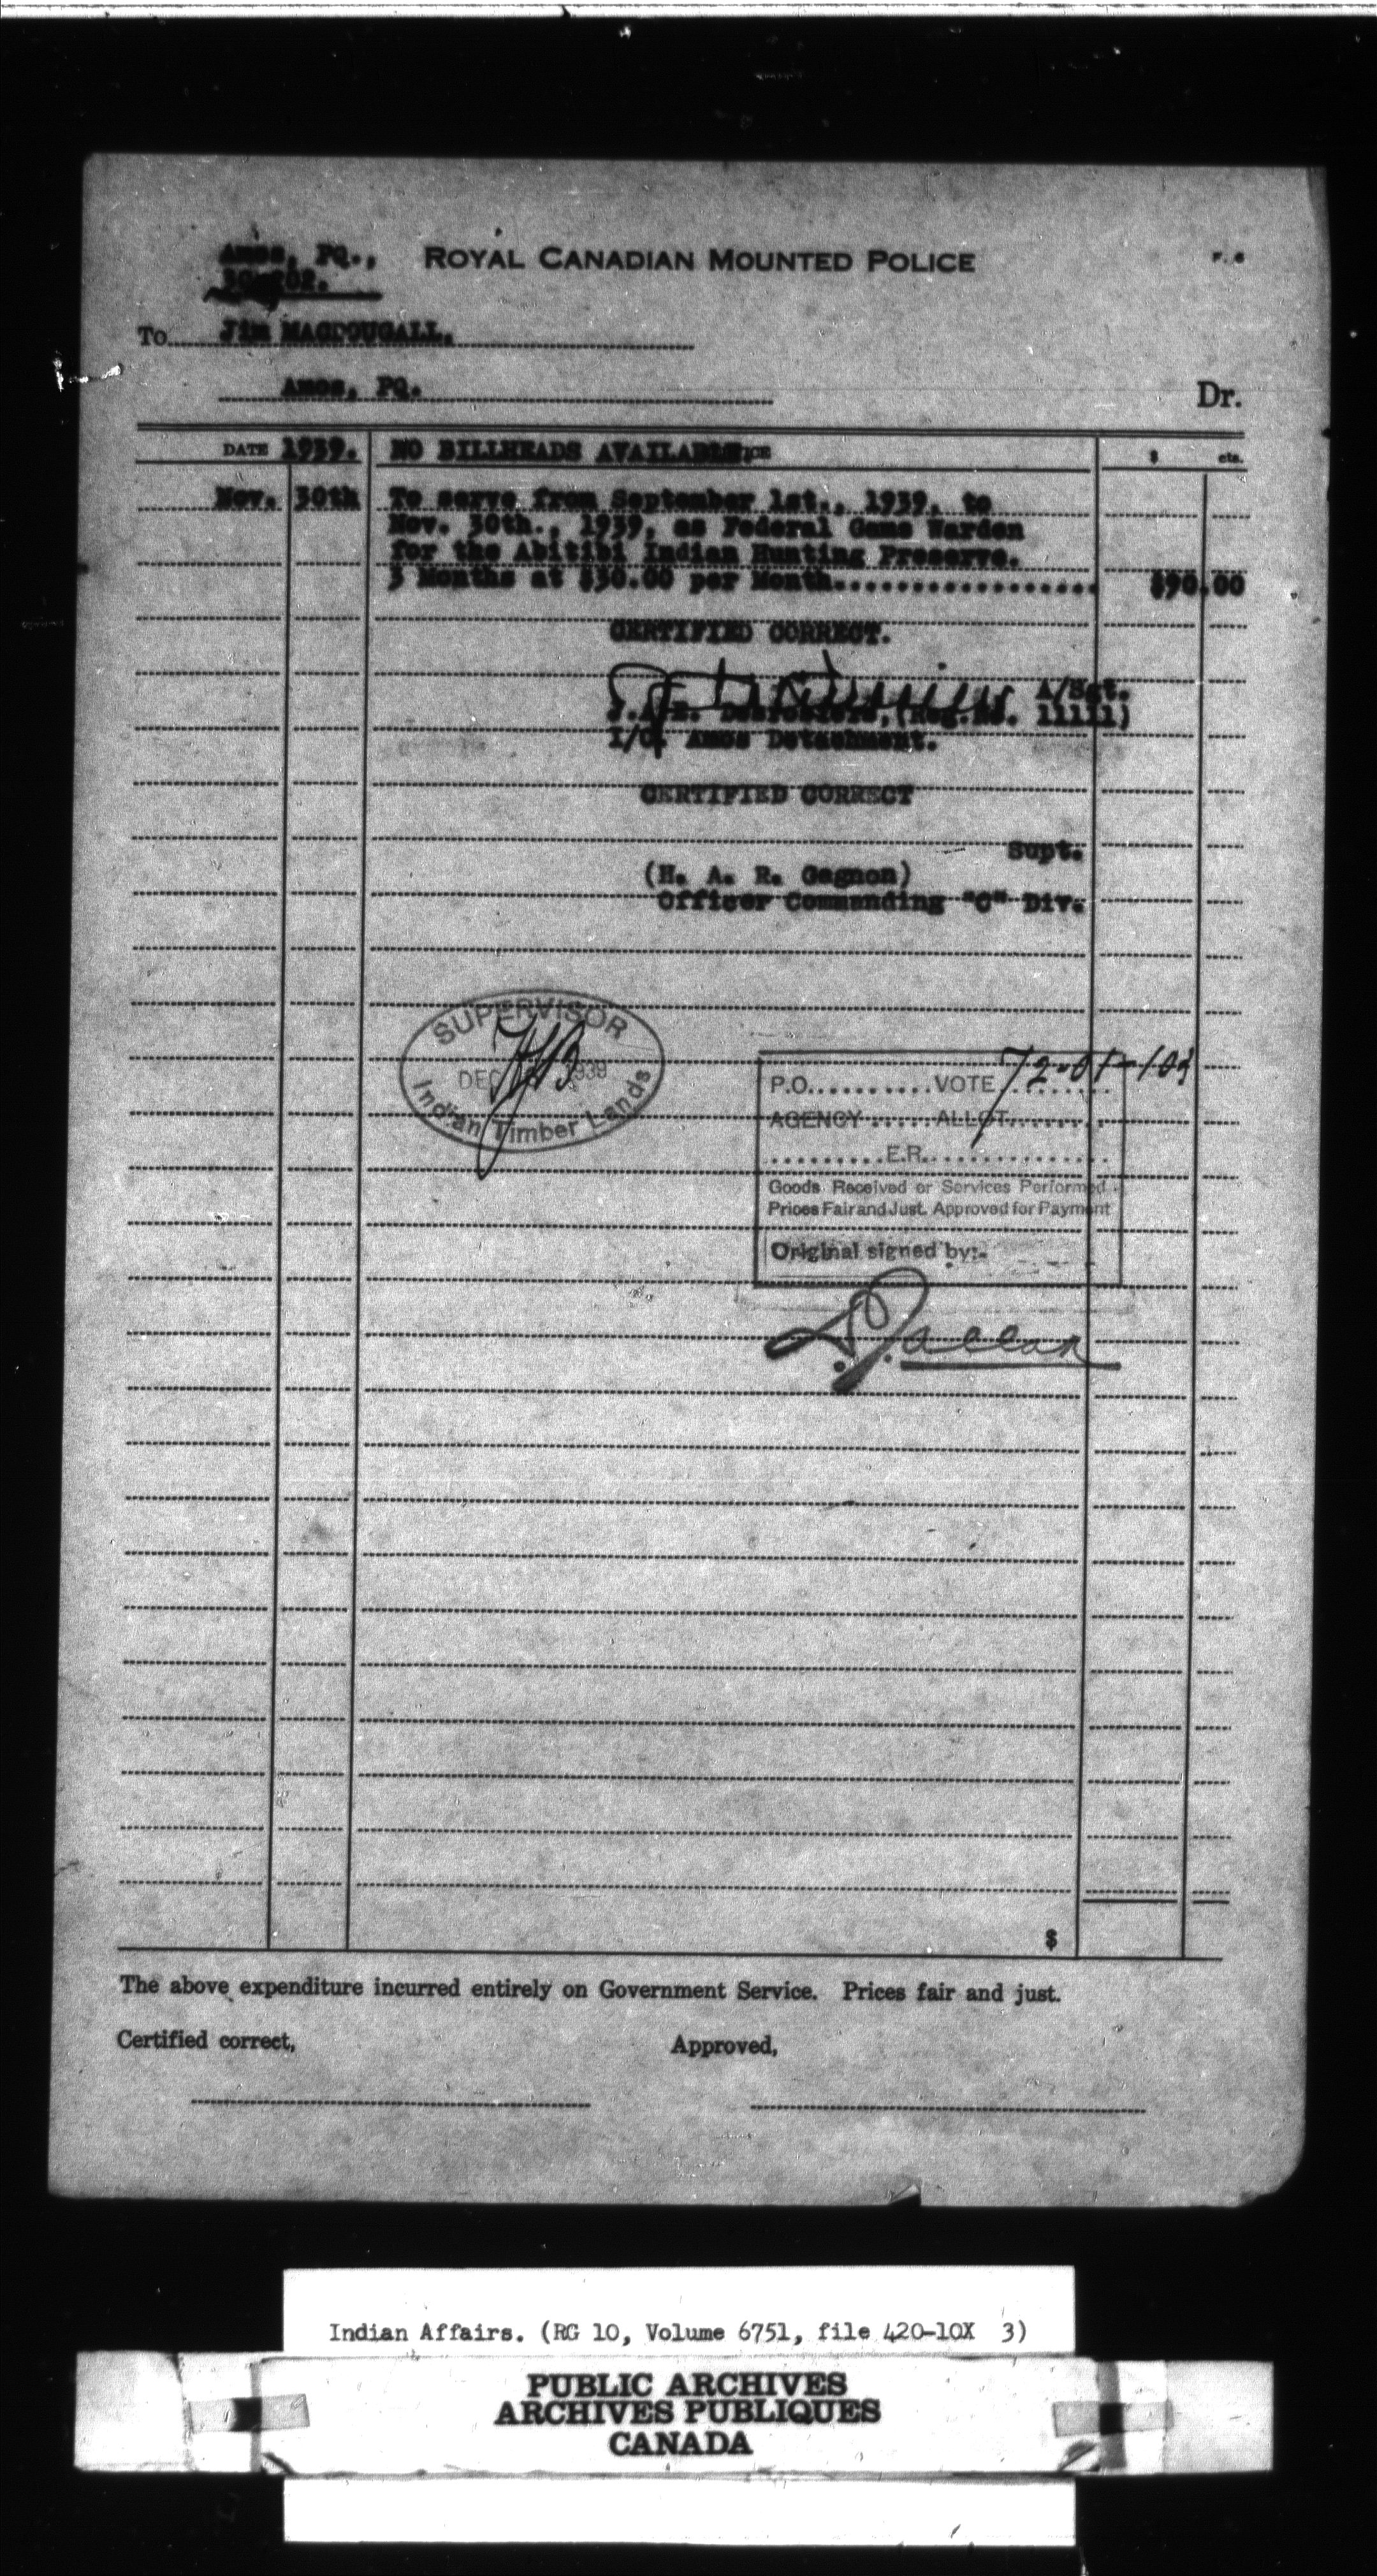 Amos, PQ., ROYAL CANADIAN MOUNTED POLICE F. 6
To Jim MACDOUGALL,
Amos, PQ. Dr.
DATE 1939. NO BILLHEADS AVAILABLE. $ cts.
Nov. 30th To serve from September 1st., 1939, to
Nov. 30th., 1939, as Federal Game Warden
for the Abitibi Indian Hunting Preserve.
3 Months at $30.00 per Month.................. $90.00
CERTIFIED CORRECT.
A/Sgt.
(Reg.No. 11111)
I/C. Amos Detachment.
CERTIFIED CORRECT
Supt.
(H. A. R. Gagnon)
Officer Commanding "C" Div.
SUPERVISOR
DEC 1939
Indian Timber Lands
P.O.......... VOTE 72-01-103
AGENCY ...... ALLOT........
.........E.R...............
Goods Received or Services Performed
Prices Fair and Just. Approved for Payment
Original signed by:-
$
The above expenditure incurred entirely on Government Service. Prices fair and just.
Certified correct, Approved,
Indian Affairs. (RG 10, Volume 6751, file 420-10X 3)
PUBLIC ARCHIVES
ARCHIVES PUBLIQUES
CANADA